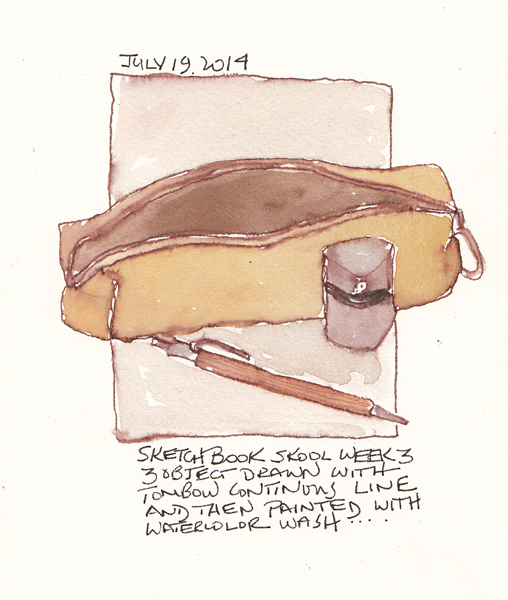 JULY 19. 2014
SKETCHBOOK SKOOL WEEK 3
3 OBJECT DRAWN WITH
TOMBOW CONTINOUS LINE
AND THEN PAINTED WITH
WATERCOLOR WASH ....